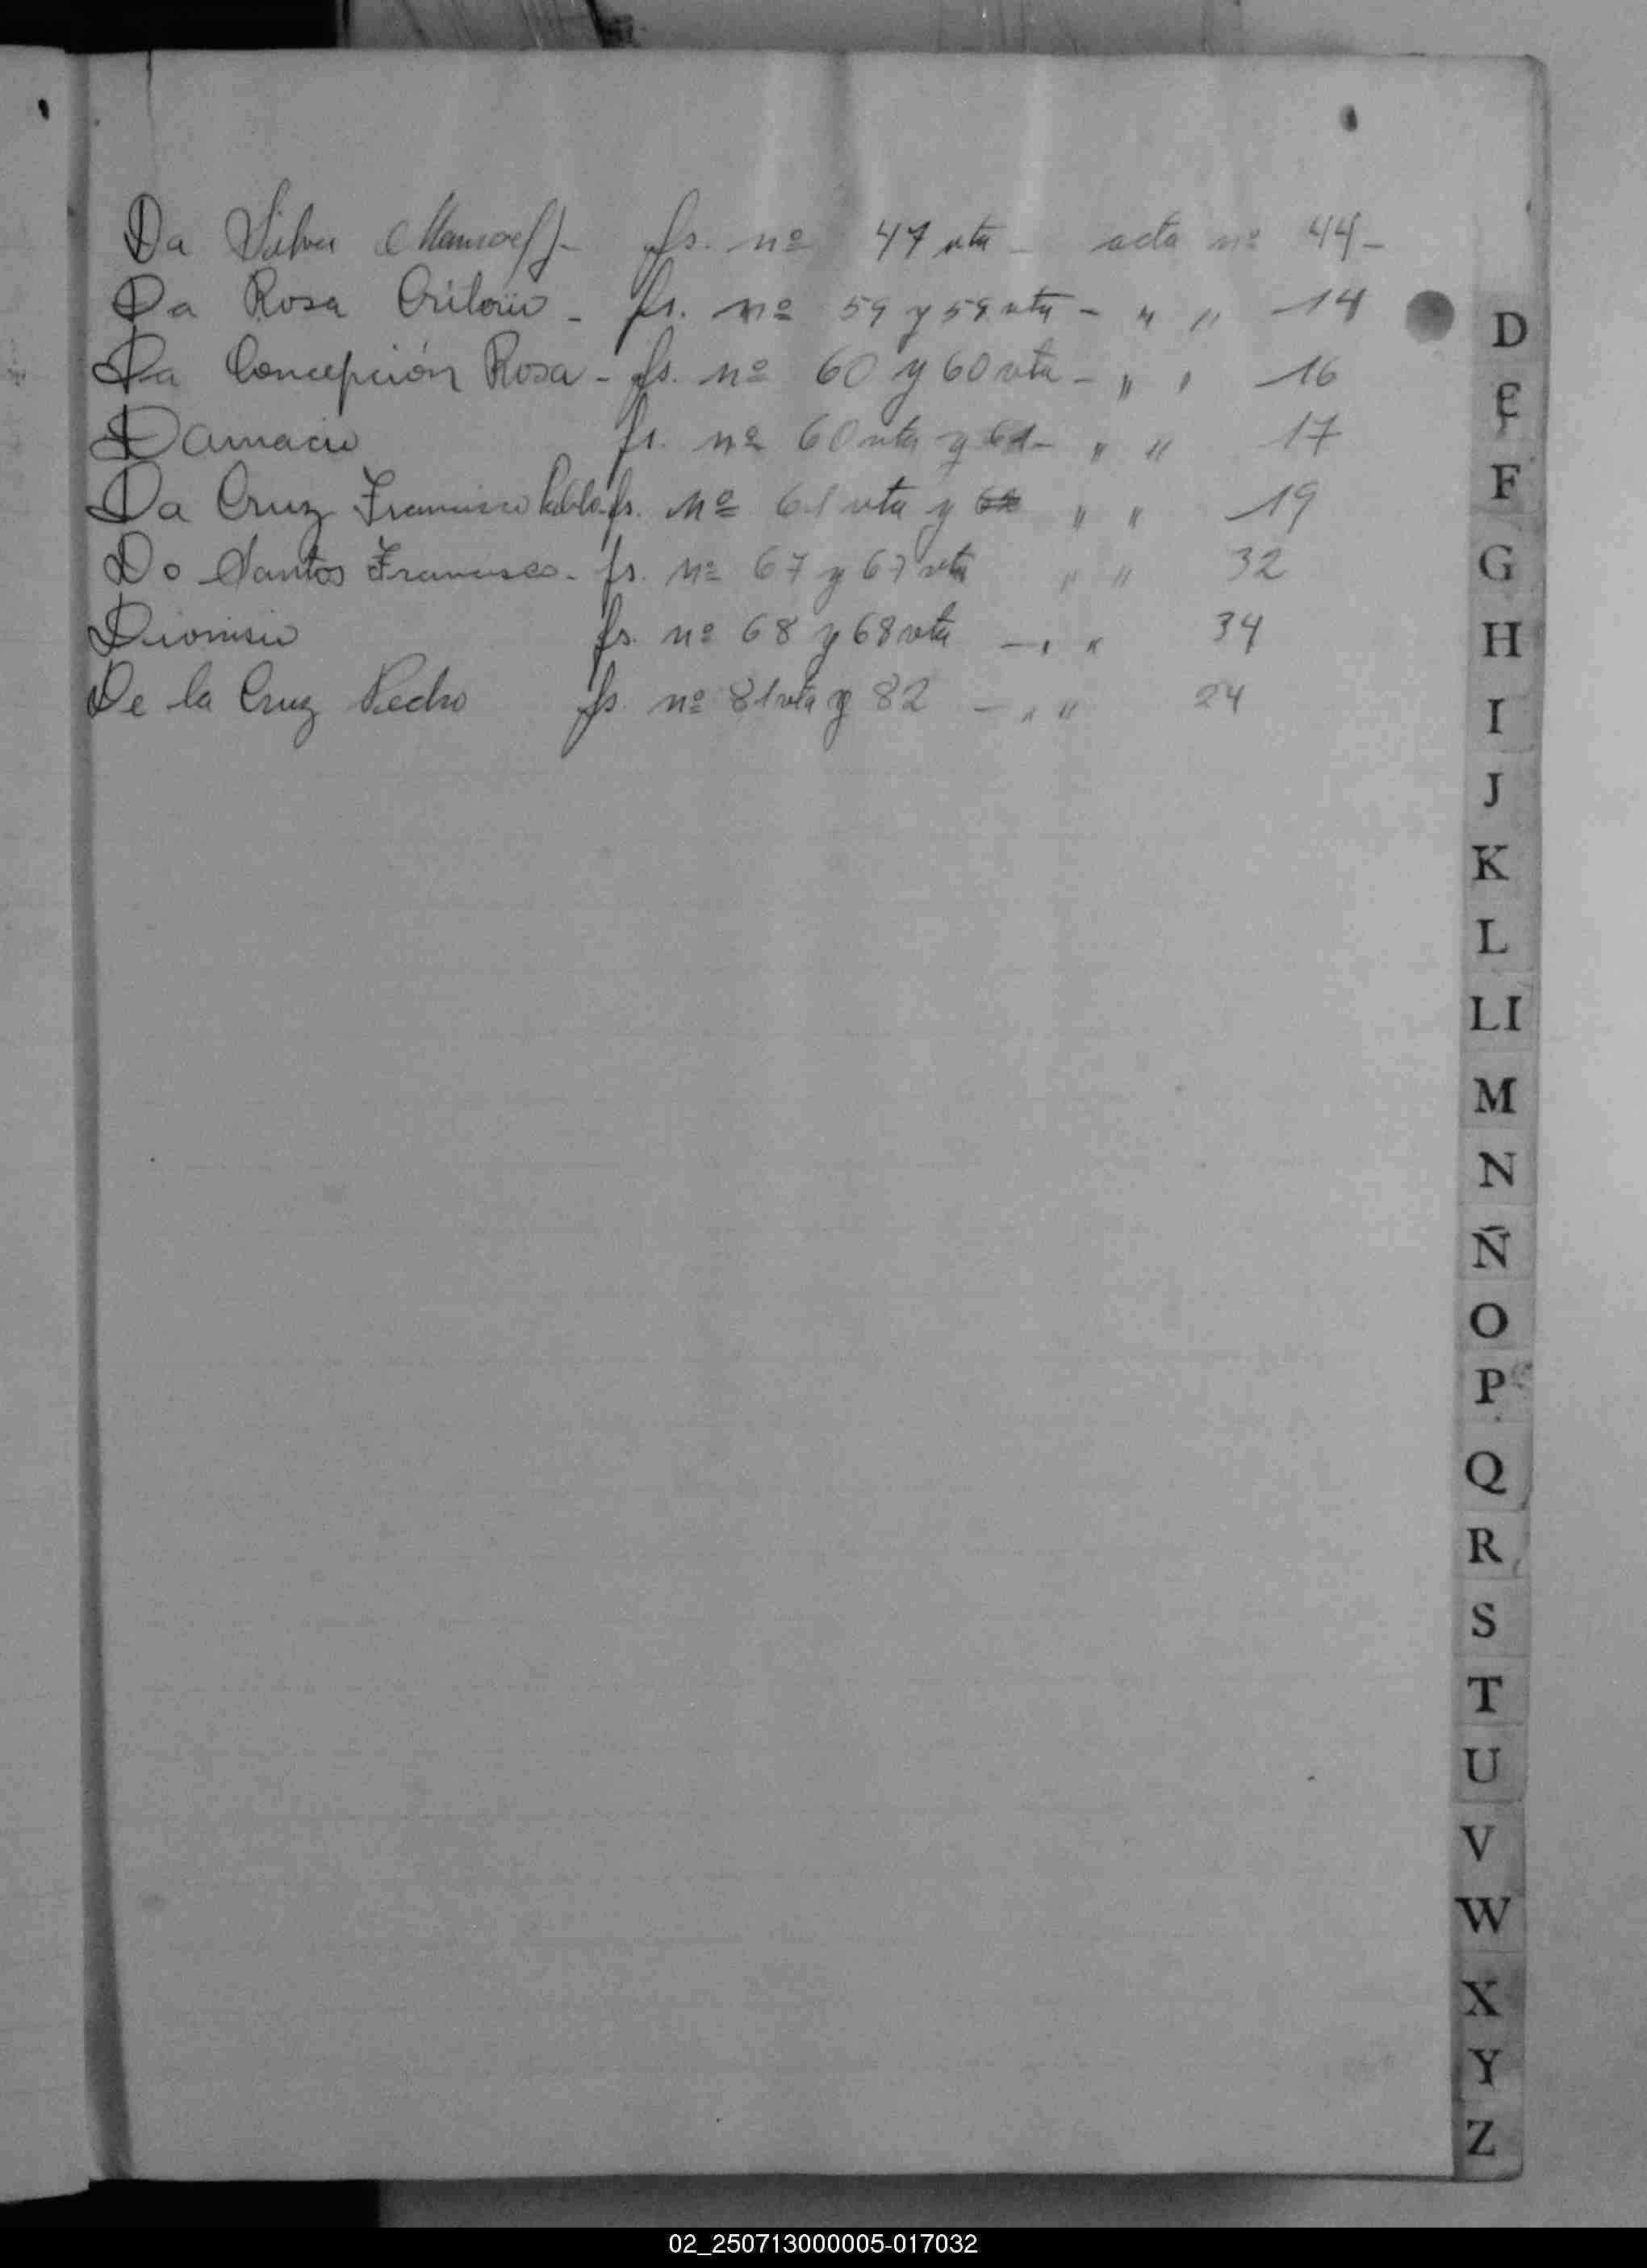 Da Silva Manoel J- fs. nº 47 vta - acta nº 44-
Da Rosa - fs. nº 59 y 59 vta - " " 14
Da Concepción Rosa - fs. nº 60 y 60 vta - " " 16
Damacio fs. nº 60 vta y 61- " " 17
Da Cruz Francisco Pablo- fs. nº 61 vta y " " 19
Do Santos Francisco - fs. nº 67 y 67 vta " " 32
Dionisio fs. nº 68 y 68 vta - " " 34
De la Cruz Pedro fs. nº 81 vta y 82 - " " 24
D
E
F
G
H
I
J
K
L
LI
M
N
Ñ
O
P
Q
R
S
T
U
V
W
X
Y
Z
02_250713000005-017032